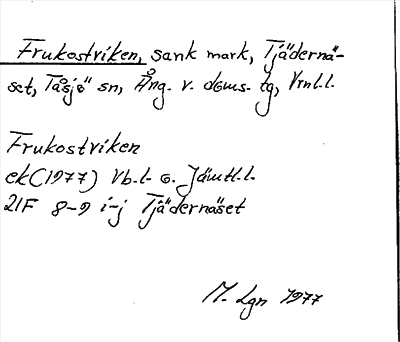 Frukostviken, sank mark, Tjädernä-
set, Tåsjö sn, Ång. v. doms. tg, Vrnl.l.
Frukostviken
ek(1977) Vb.l. o. Jämtl.l.
21F 8-9 i-j Tjädernäset
M. Lgn 1977